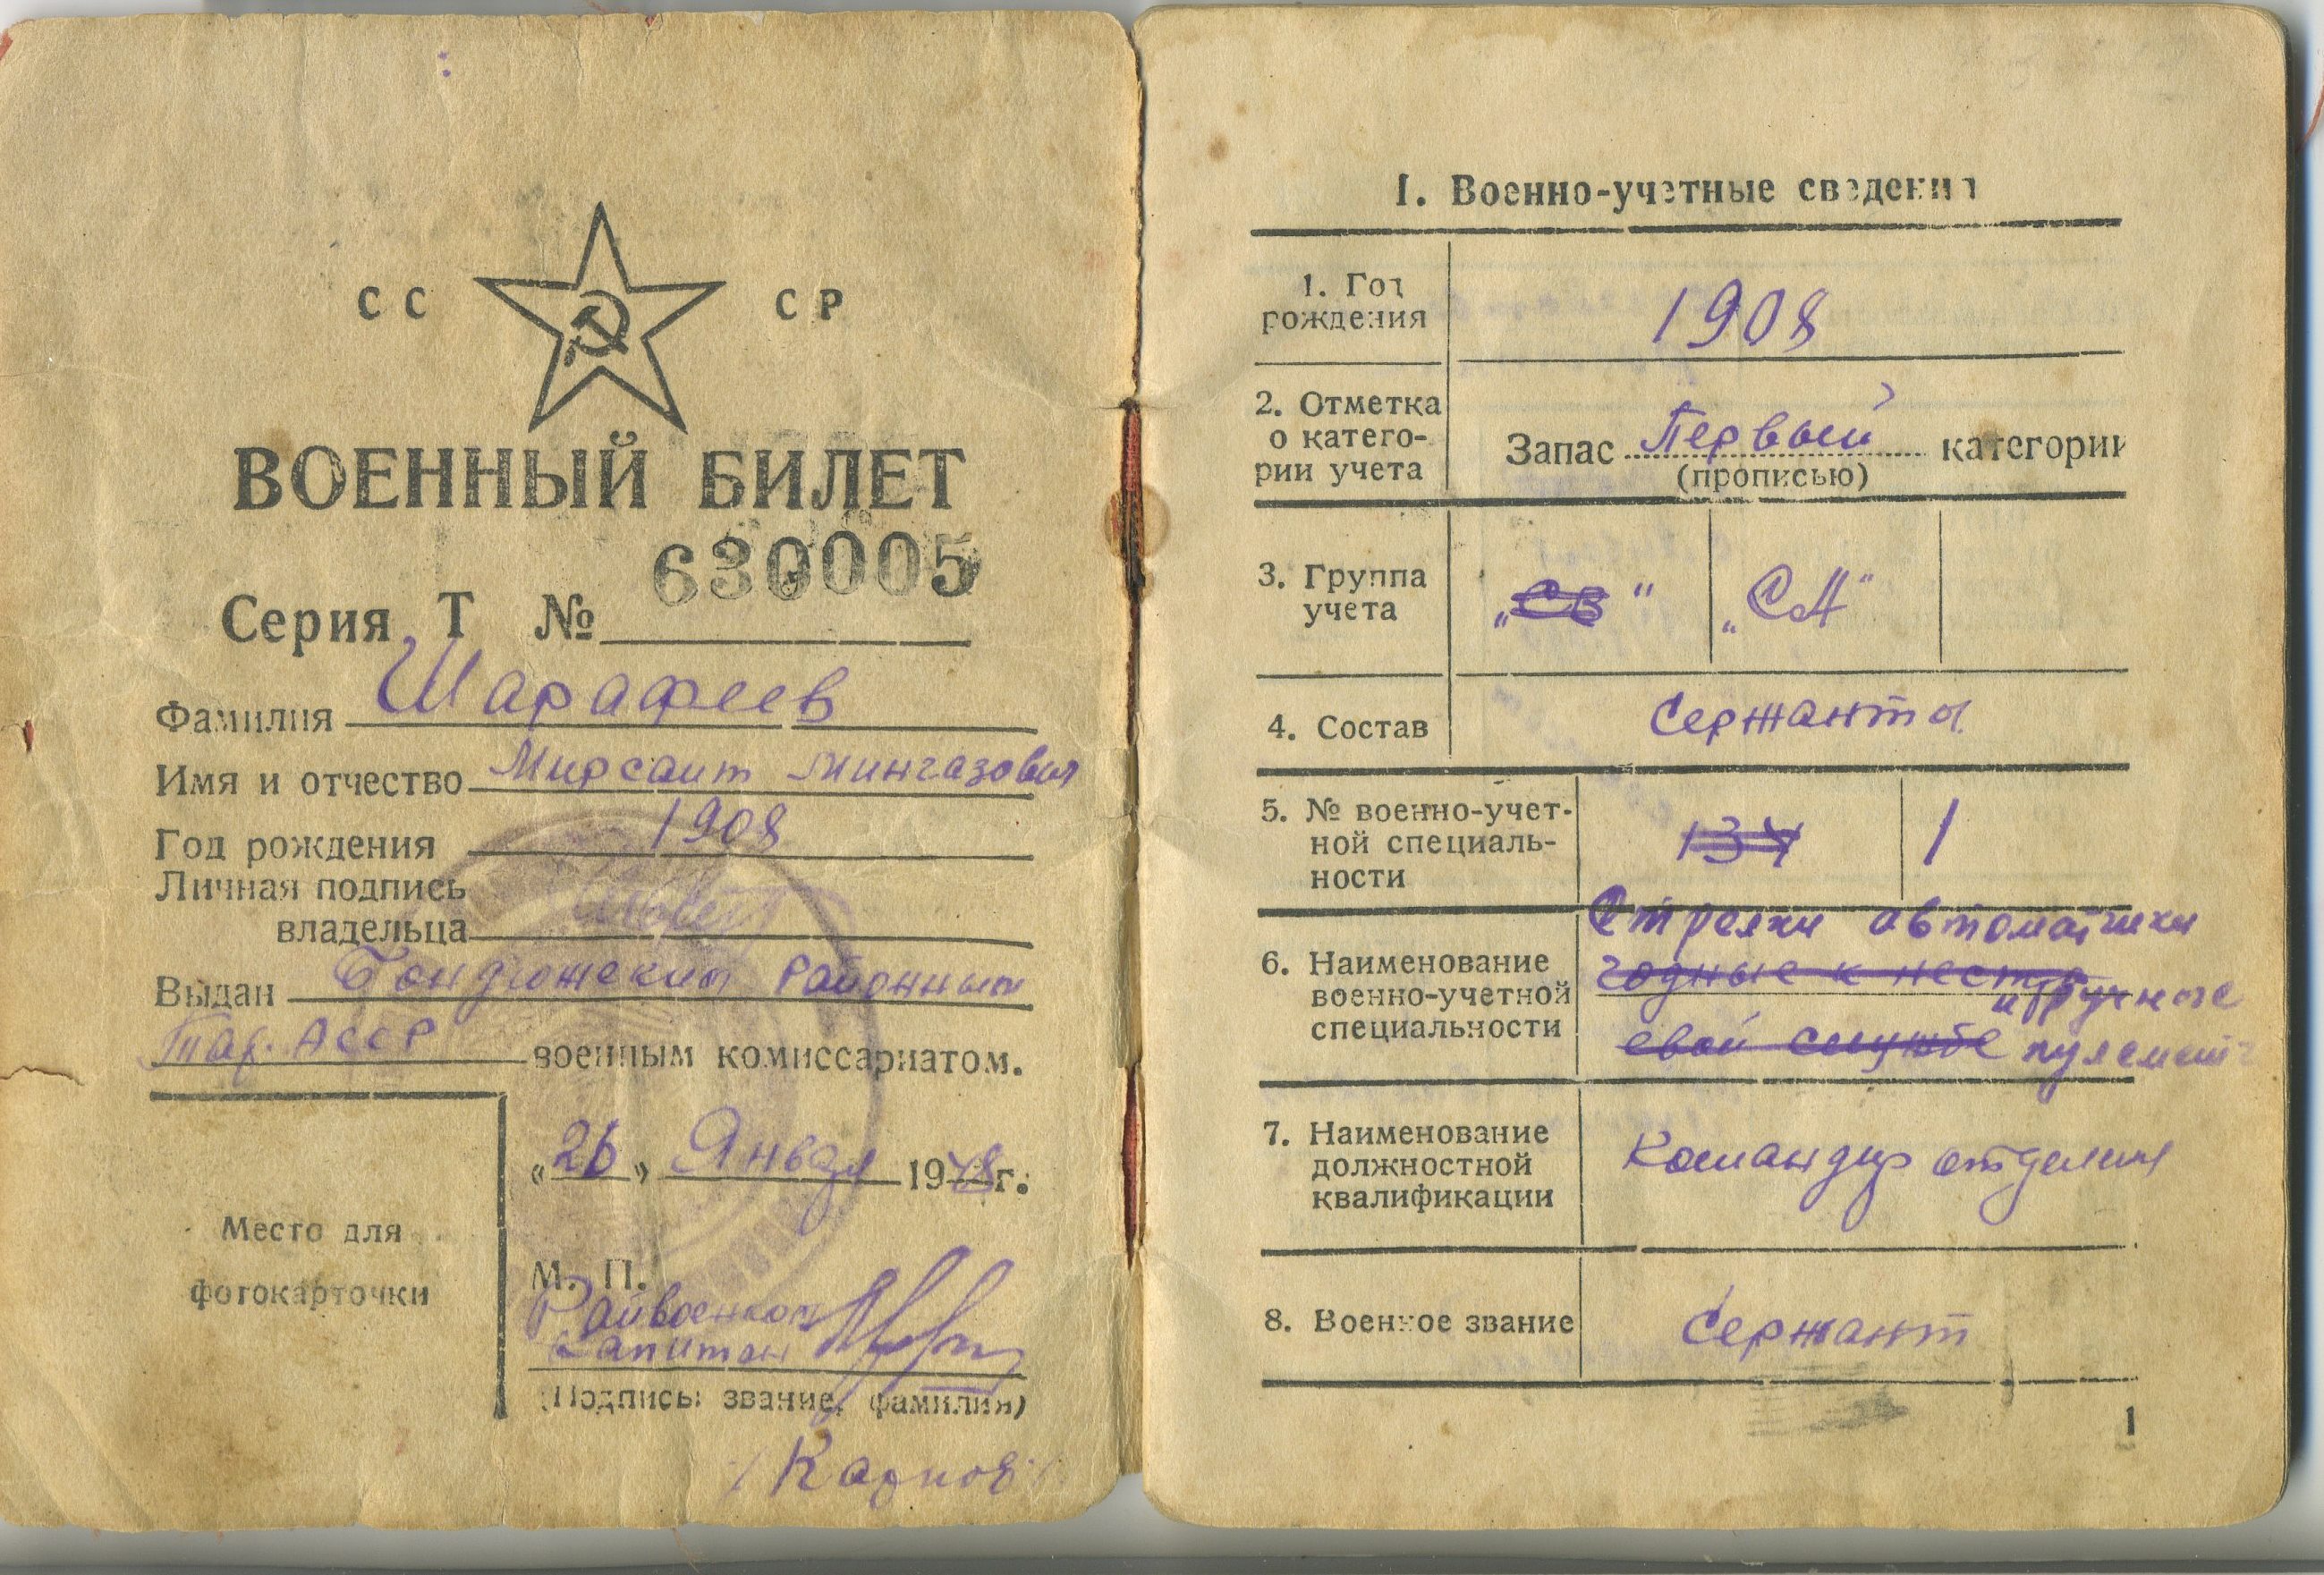 СС СР
ВОЕННЫЙ БИЛЕТ
630005
Серия Т №
Фамилия Шарафеев
Имя и отчество Мирсаит Мингазович
Год рождения 1908
Личная подпись
владельца
Выдан Бондюжским Районным
Тат. АССР военным комиссариатом.
«26» Января 1948 г.
Место для
фотокарточки
М. П.
Райвоенком
Капитан
(Подпись, звание, фамилия)
/Карпов/
I. Военно-учетные сведения
1. Год
рождения
1908
2. Отметка
о катего-
рии учета
Запас Первый категории
(прописью)
3. Группа
учета
„СВ" „СА"
4. Состав
Сержанты
5. № военно-учет-
ной специаль-
ности
134 1
6. Наименование
военно-учетной
специальности
Стрелки автоматчики
годные к нестро
и ручные
евой службе пулемет
7. Наименование
должностной
квалификации
Командир отделения
8. Военное звание
Сержант
1